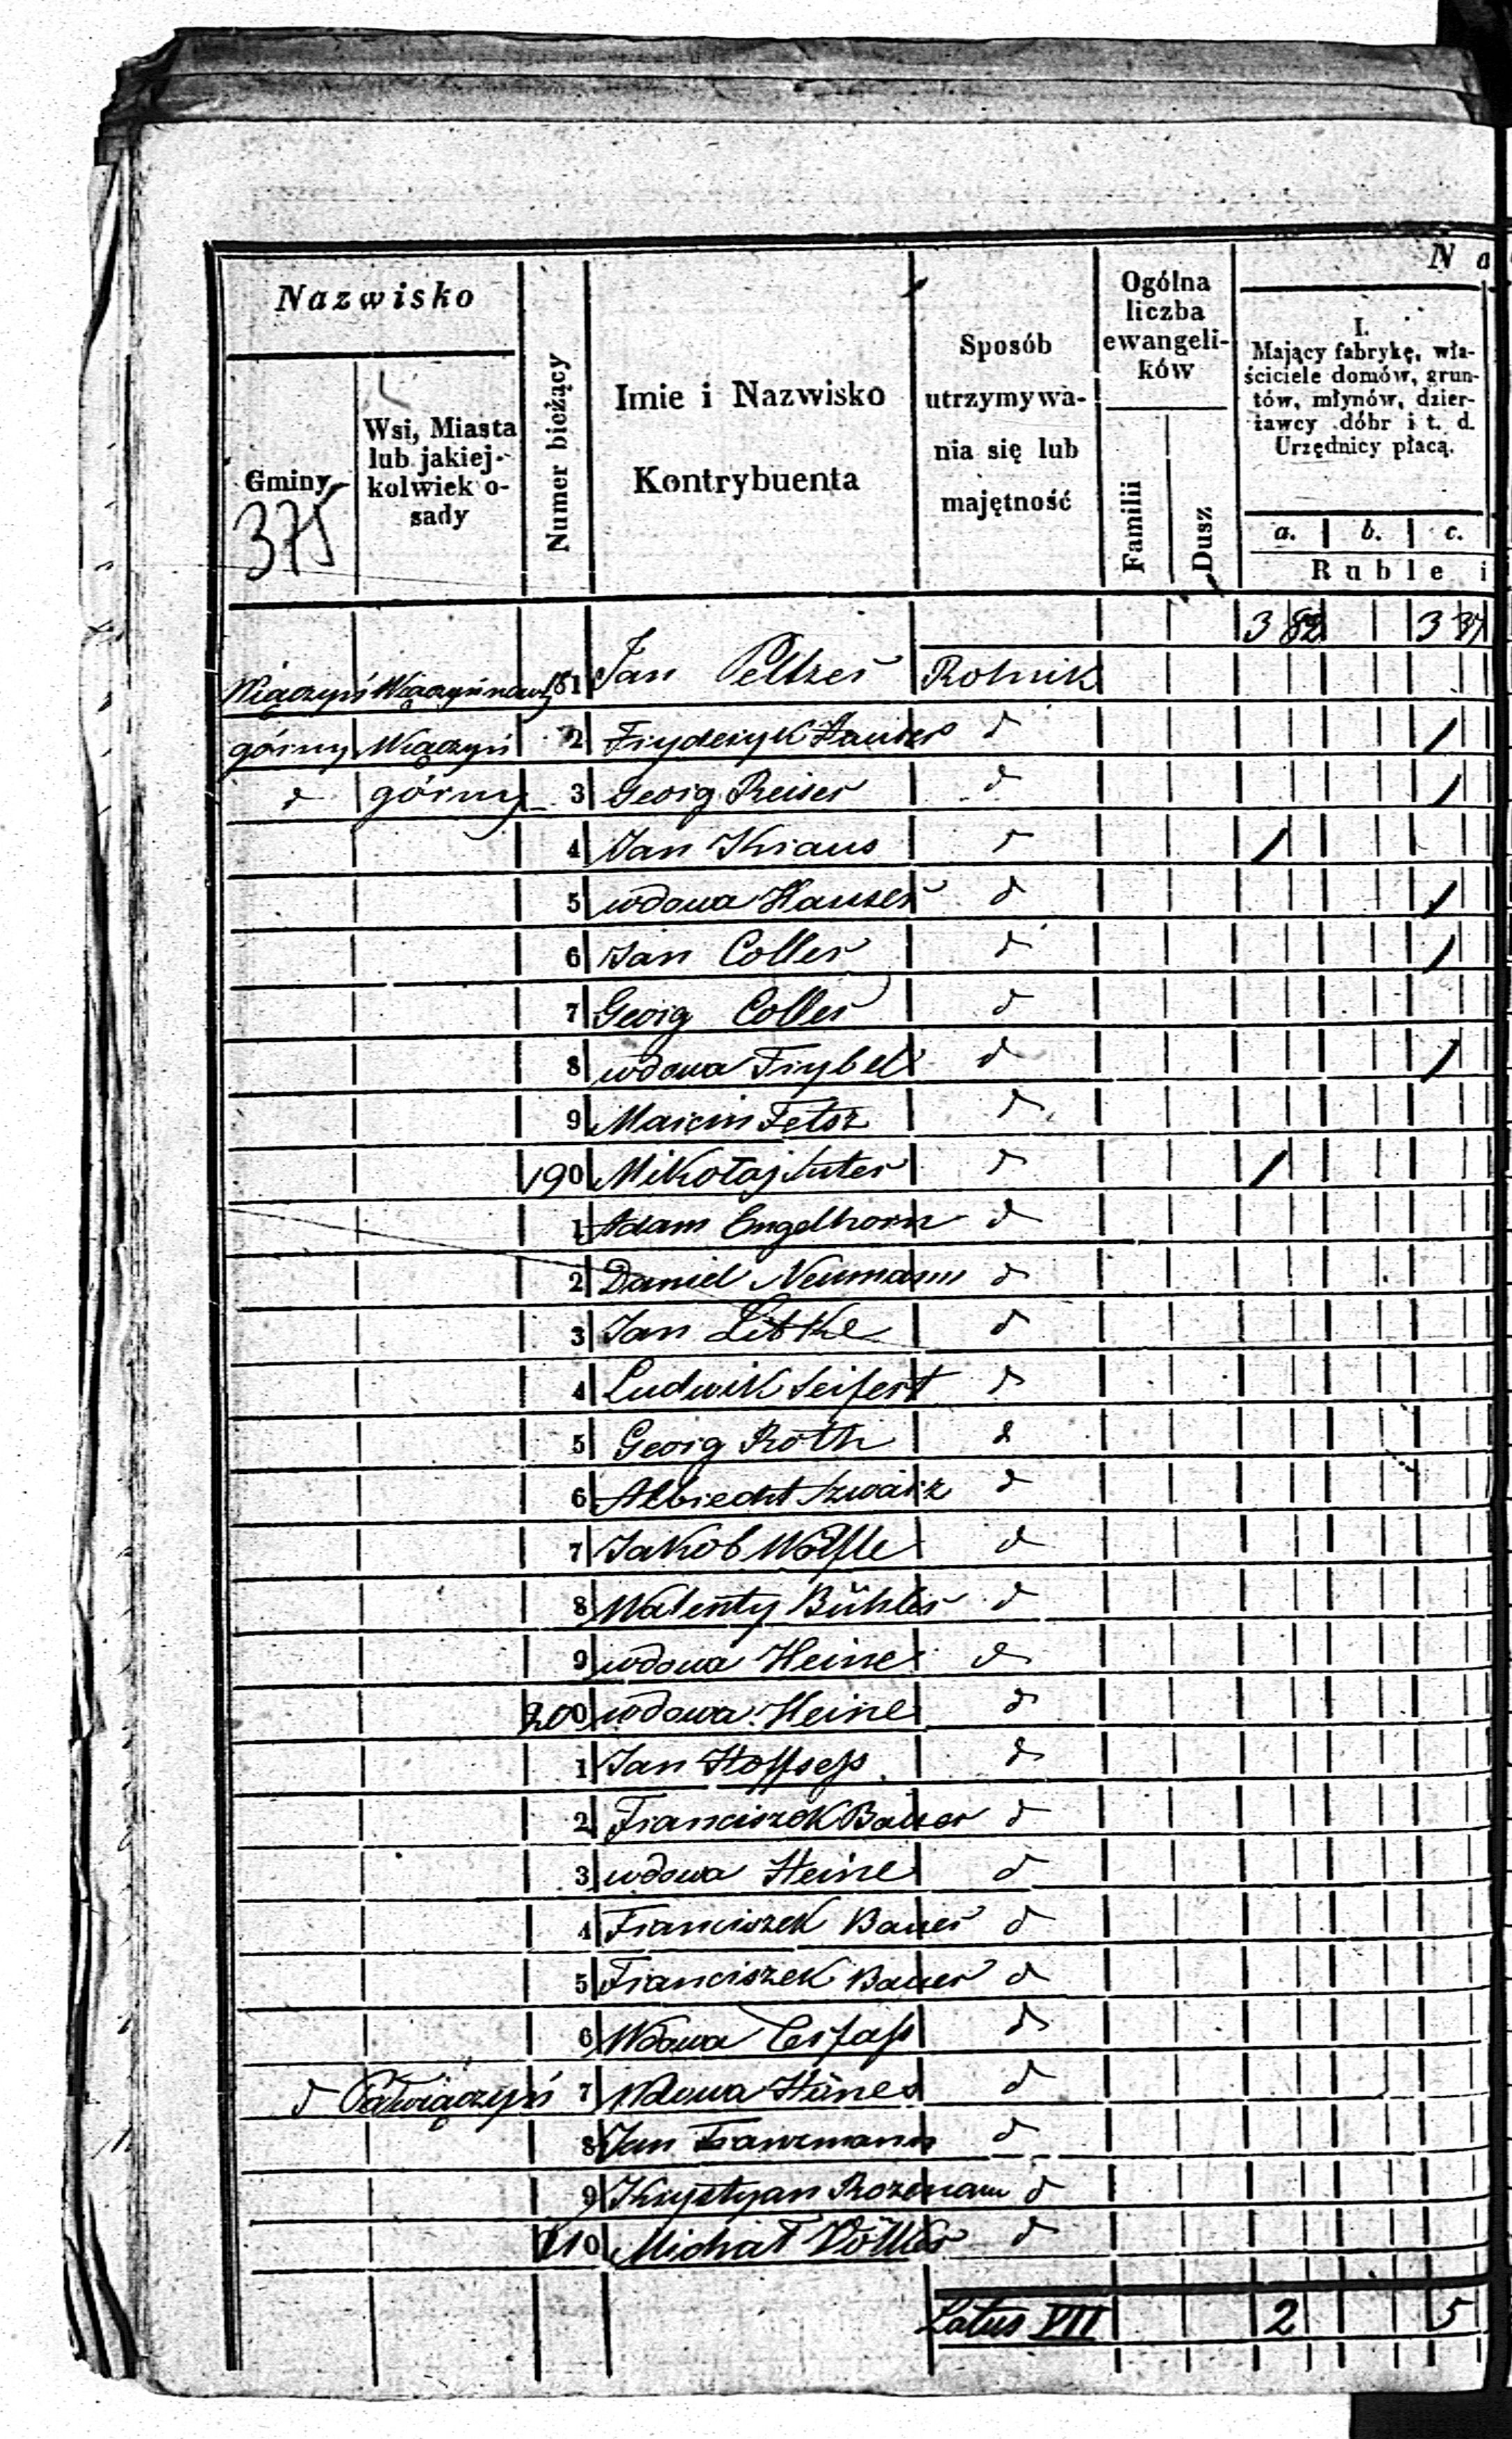 Nazwisko
Gminy
Wsi, Miasta
lub jakiej-
kolwiek o-
sady
Numer bieżący
Imie i Nazwisko
Kontrybuenta
Sposób
utrzymywa-
nia się lub
majętność
Ogólna
liczba
ewangeli-
ków
Familii
Dusz
Na
I.
Mający fabrykę, wła-
ściciele domów, grun-
tów, młynów, dzier-
żawcy dóbr i t. d.
Urzędnicy płacą.
a. b. c.
Ruble i
375
3 82 3 37
Wiączyń 181 Jan Peltzer Rolnik
górny Wiączyń 2 Fryderyk Hauser d /
d górny 3 Georg Reiser d /
4 Jan Kraus d /
5 wdowa Hauser d /
6 Jan Coller d /
7 Georg Coller d
8 wdowa Frybel d /
9 Marcin d
190 Mikołaj Suter d /
1 Adam Engelhorn d
2 Daniel Neumann d
3 Jan Litke d
4 Ludwik Seifert d
5 Georg Roth d
6 Albrecht Szwarz d
7 Jakob Wölfle d
8 Walenty Bühler d
9 wdowa Heine d
200 wdowa Heine d
1 Jan Hoffseß d
2 Franciszek Bauer d
3 wdowa Heine d
4 Franciszek Bauer d
5 Franciszek Bauer d
6 Wdowa d
d 7 Wdowa d
8 Jan d
9 Krystyan d
210 Michał Völker d
Latus VII 2 5